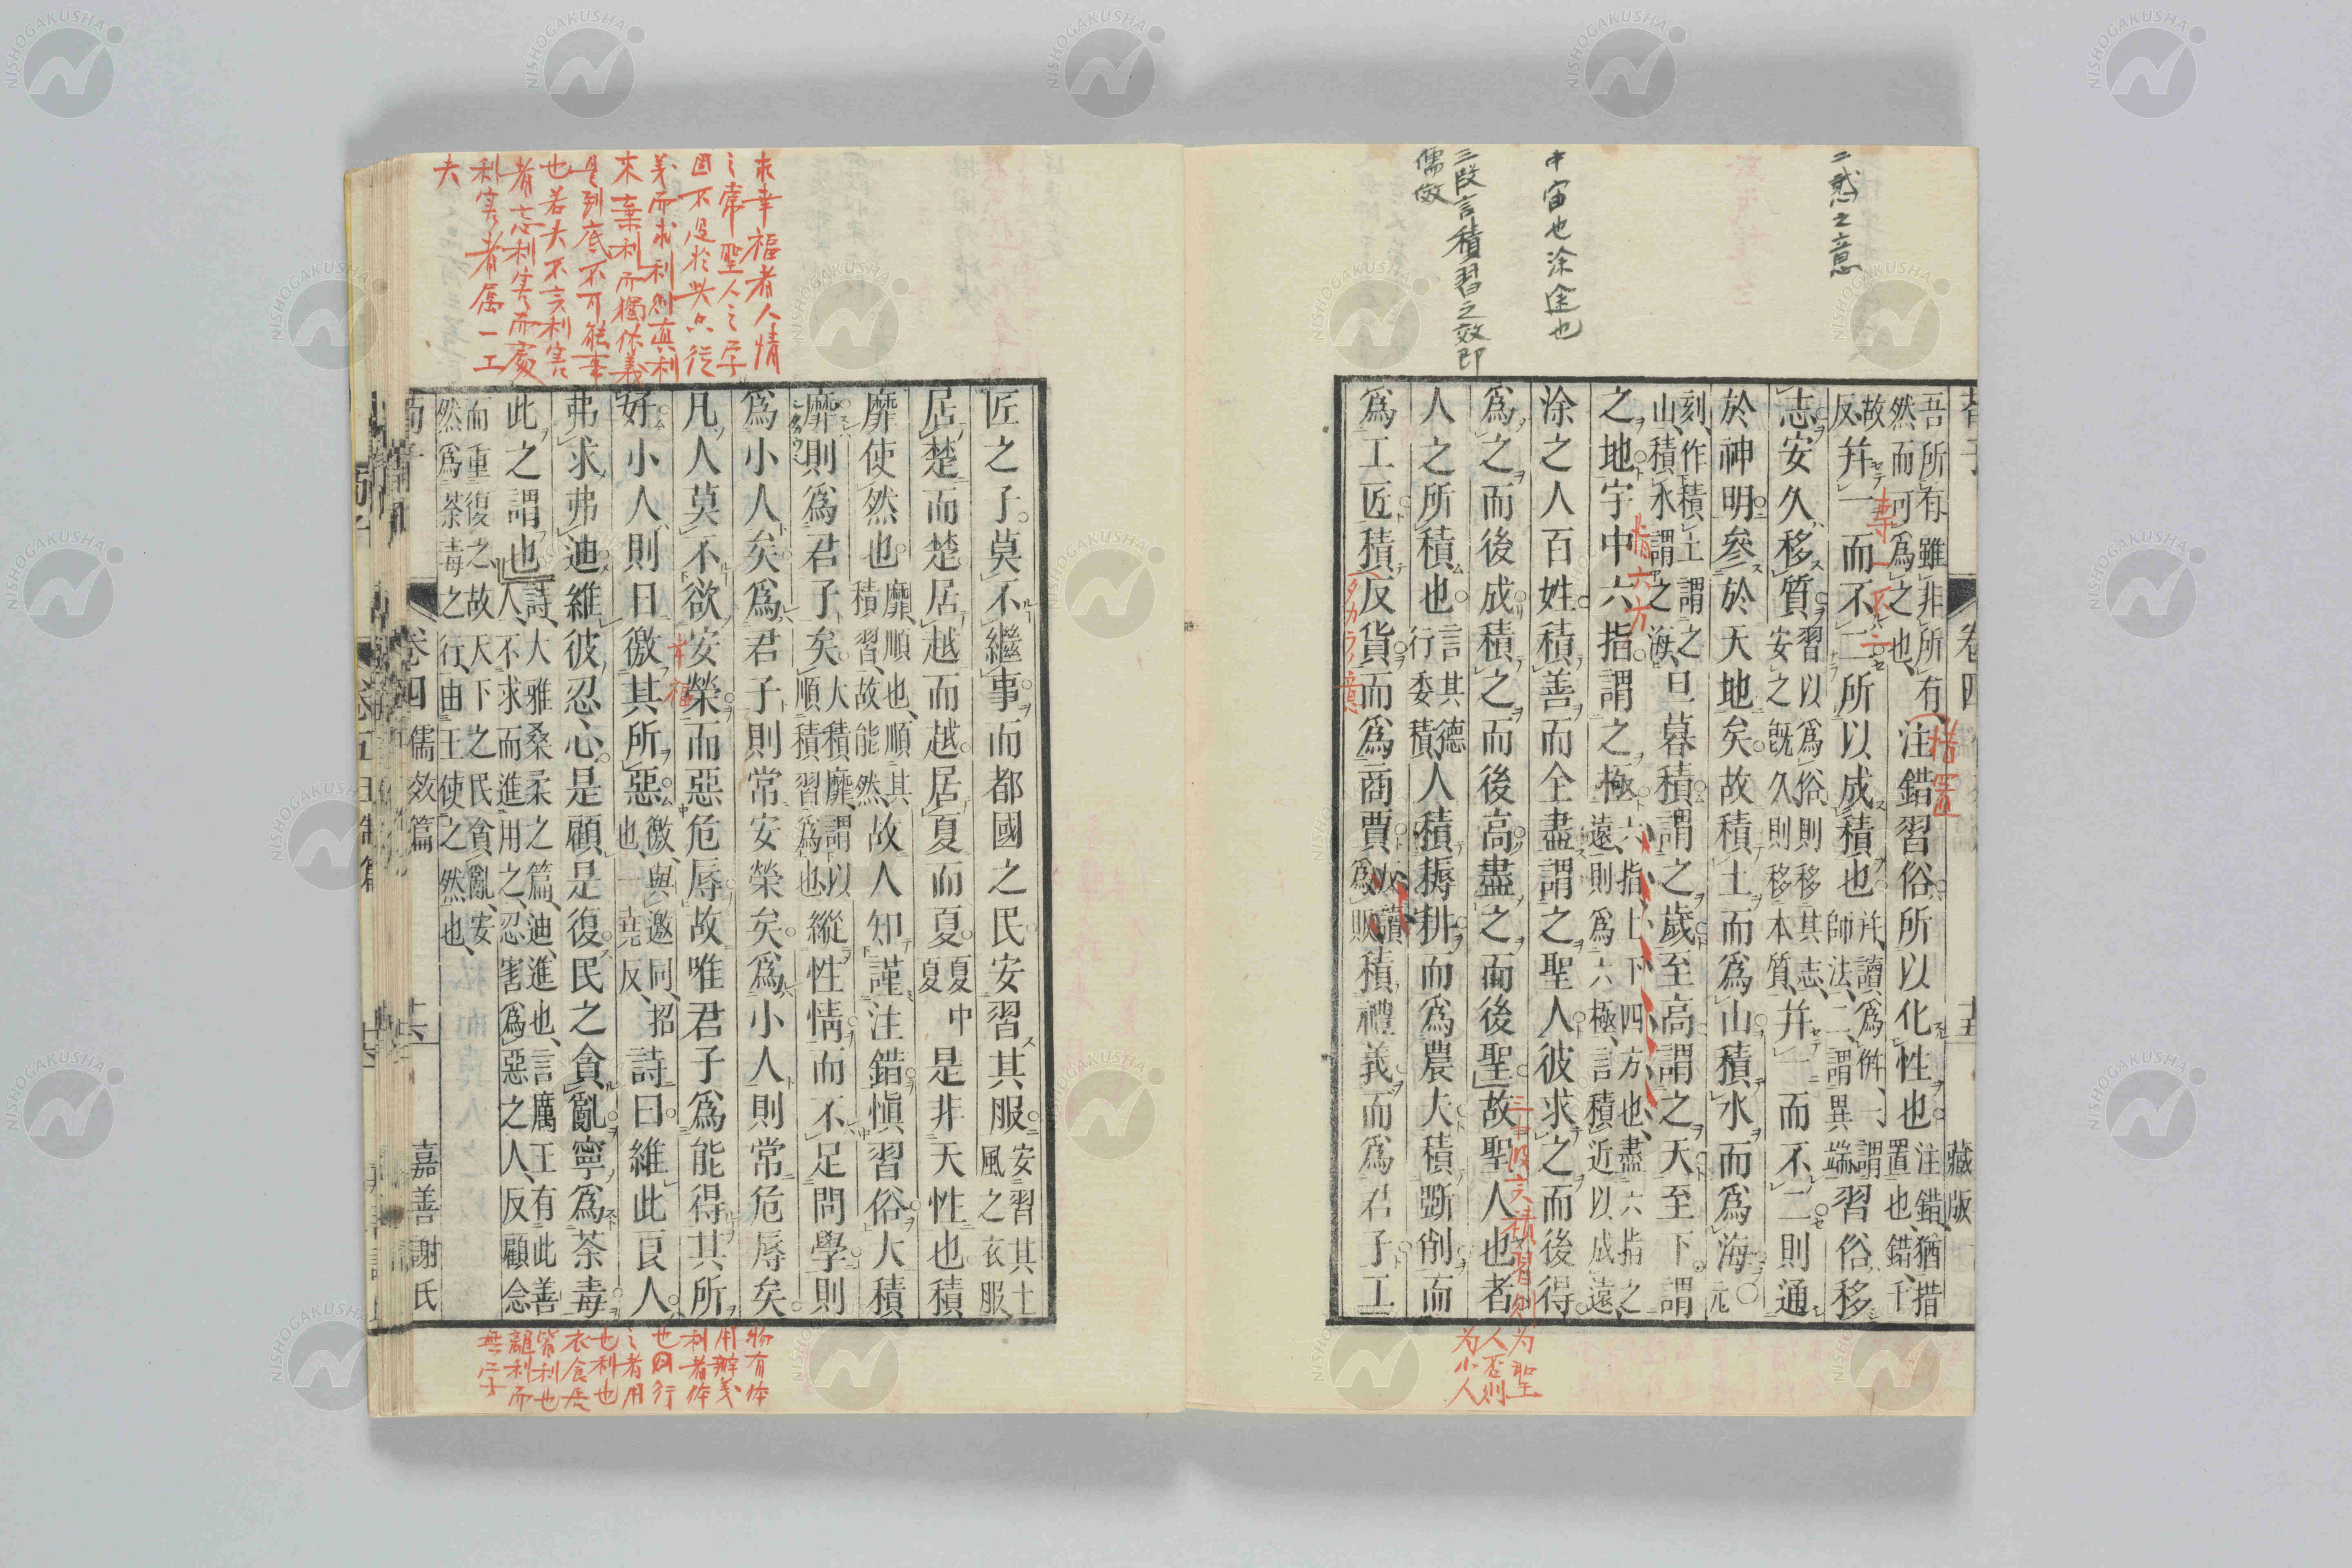 二惑之意
中宙也涂途也
三段言積習之效即
儒效
吾所有雖非所有注錯習俗所以化性也注錯猶措
然而可為之也置也錯千
故反并一而不二所以成積也并讀為併一謂師法二謂異端習俗移
志安久移質習以為俗則移其志安之既久則移本質并一而不二則通
於神明參於天地矣故積土而為山積水而為海元
刻作積土謂之山積水謂之海旦暮積謂之歲至高謂之天至下謂
之地宇中六指謂之極六指上下四方也盡六指之遠則為六極言積近以成遠
涂之人百姓積善而全盡謂之聖人彼求之而後得
為之而後成積之而後高盡之而後聖故聖人也者
人之所積也言其德行委積人積耨耕而為農大積斲削而
為工匠積反貨而為商賈反讀為販積禮義而為君子工
措置
專一不二
指六方
タカラノ意
三中段言積習則為聖
人否則
為小人
藏版
匠之子莫不繼事而都國之民安習其服安習其土風之衣服
居楚而楚居越而越居夏而夏夏中夏是非天性也積
靡使然也靡順也順其積習故能然故人知謹注錯慎習俗大積
靡則為君子矣大積靡謂以順積習為也縱性情而不足問學則
為小人矣為君子則常安榮矣為小人則常危辱矣
凡人莫不欲安榮而惡危辱故唯君子為能得其所
好小人則日徼其所惡徼與邀同招也一堯反詩曰維此良人
弗求弗迪維彼忍心是顧是復民之貪亂寧為荼毒
此之謂也詩大雅桑柔之篇迪進也言厲王有此善人不求而進用之忍害為惡之人反顧念
而重復之故天下之民貪亂安然為荼毒之行由王使之然也
幸福
求幸福者人情
之常聖人之学
固不過於此只従
義而求利則真利
来棄利而獨依義
是到底不可能事
也若夫不言利害
者忘利害而處
利害者属一工
夫
物有体
用辨義
利者体
也因行
之者用
也利也
衣食居
皆利也
離利而
卷四儒效篇
十六
嘉善謝氏